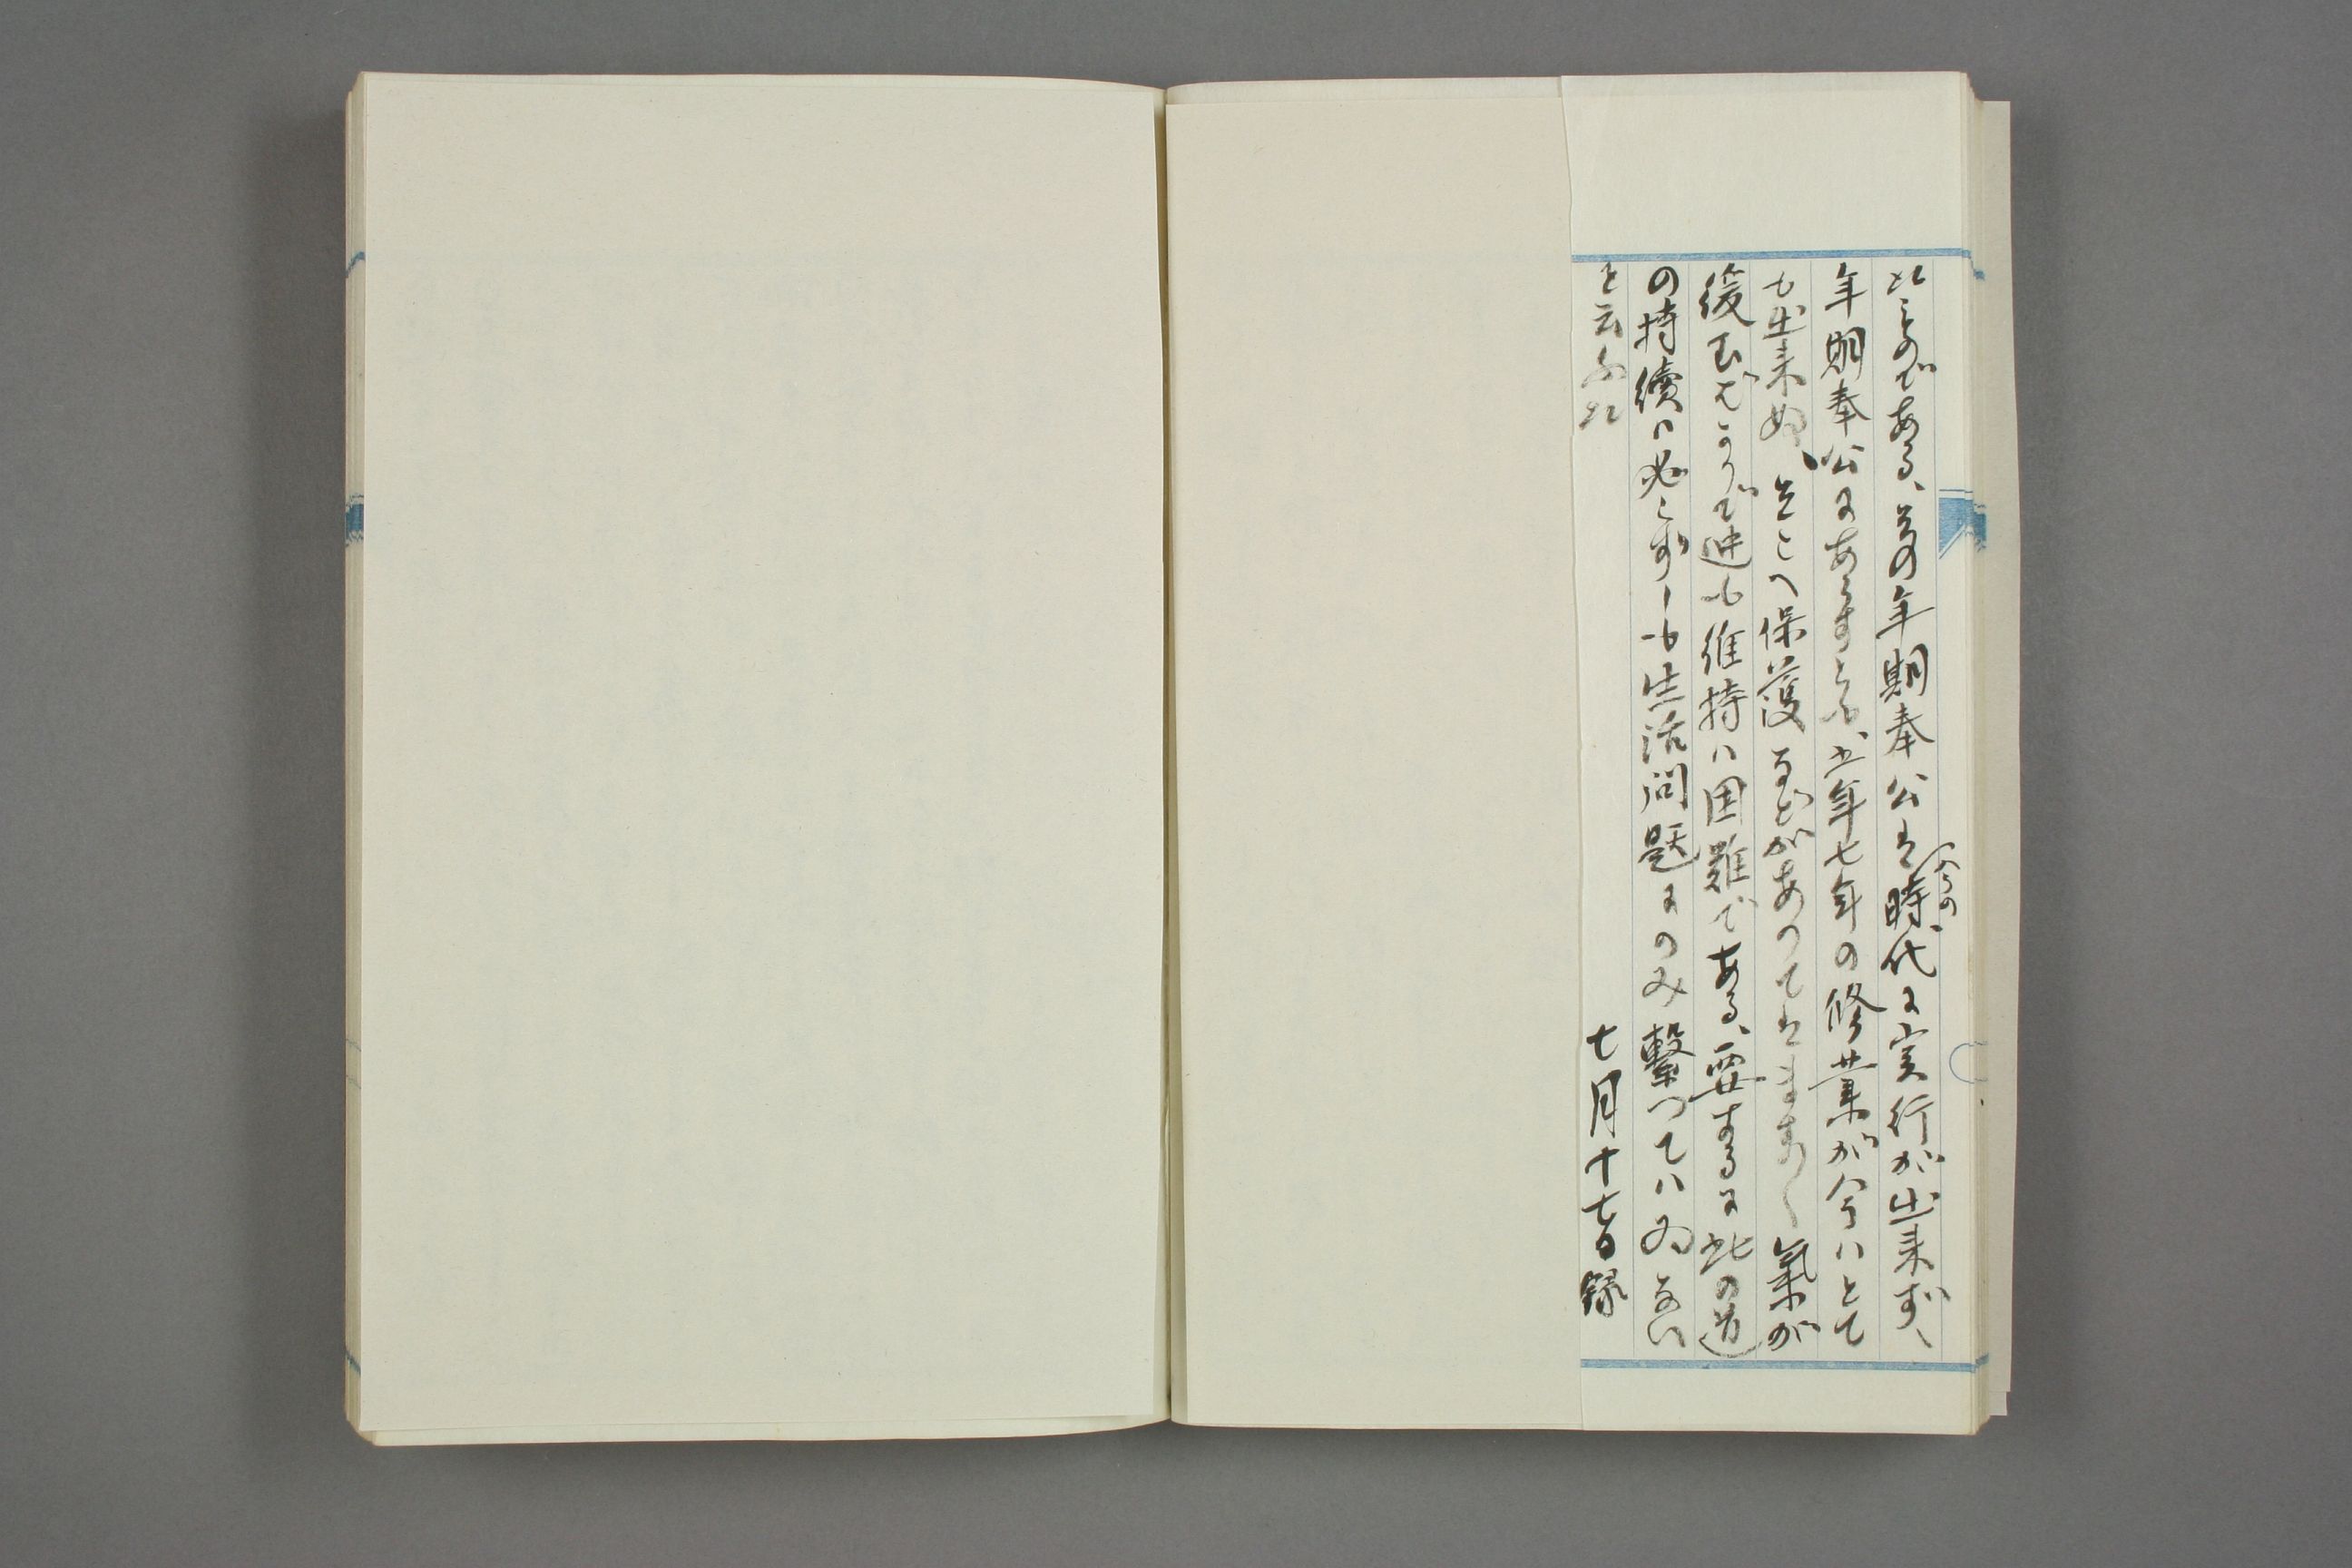 たのである、昔の年期奉公は今の時代に実行が出来ず、
年期奉公にあらずとも、五年七年の修業が今はとても
も出来ぬ、そこへ保護などがあつてはますます氣が
緩むばかりで迚も維持は困難である、要するに此の道
の持續は必らずしも生活問題にのみ繋つてはゐない
と云ふた
七月十七日録